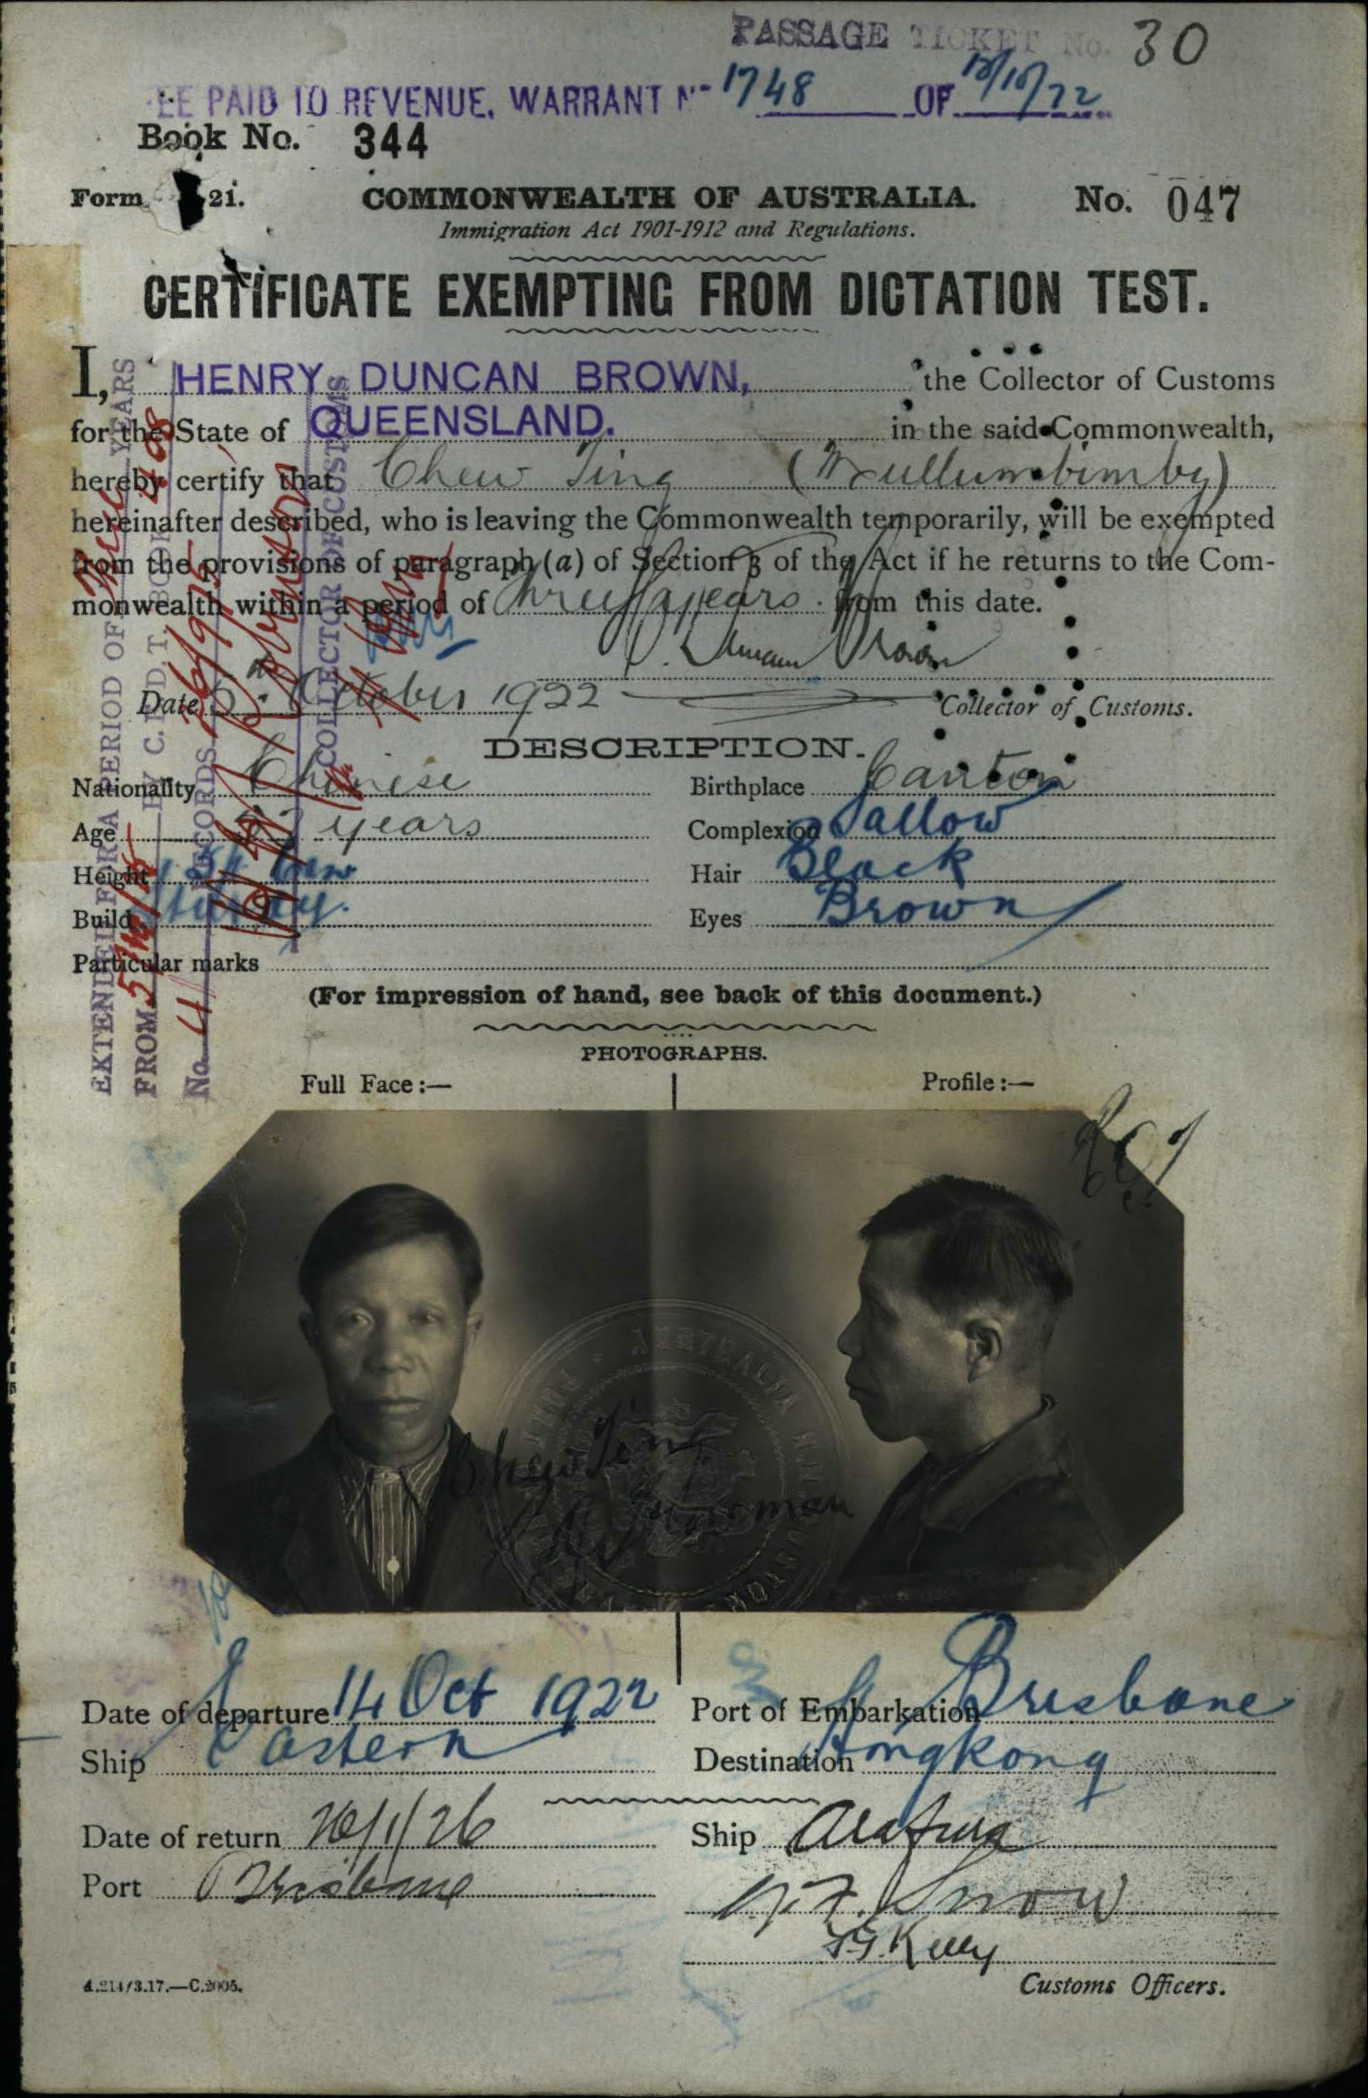 PASSAGE TICKET No. 30
EE PAID TO REVENUE, WARRANT No 1748 OF /10/22
Book No. 344
Form 21.
COMMONWEALTH OF AUSTRALIA.
No. 047
Immigration Act 1901-1912 and Regulations.
CERTIFICATE EXEMPTING FROM DICTATION TEST.
I, HENRY DUNCAN BROWN, the Collector of Customs
for the State of QUEENSLAND. in the said Commonwealth,
hereby certify that Chew Ting (Mullumbimby)
hereinafter described, who is leaving the Commonwealth temporarily, will be exempted
from the provisions of paragraph (a) of Section 3 of the Act if he returns to the Com-
monwealth within a period of three years from this date.
H. Duncan Brown
Date 5th October 1922
Collector of Customs.
DESCRIPTION.
Nationality Chinese
Birthplace Canton
Age years
Complexion Sallow
Height
Hair Black
Build Sturdy.
Eyes Brown
Particular marks
EXTENDED FOR A PERIOD OF Three YEARS
FROM 5/10/25 BY C.E.D.T. BOOK 408
No. 4 RECORDS 26/9/25
COLLECTOR OF CUSTOMS
(For impression of hand, see back of this document.)
PHOTOGRAPHS.
Full Face:—
Profile:—
Chew Ting
Date of departure 14 Oct 1922
Port of Embarkation Brisbane
Ship Eastern
Destination Hongkong
Date of return 26/1/26
Ship Arafura
Port Brisbane
Snow
Kelly
Customs Officers.